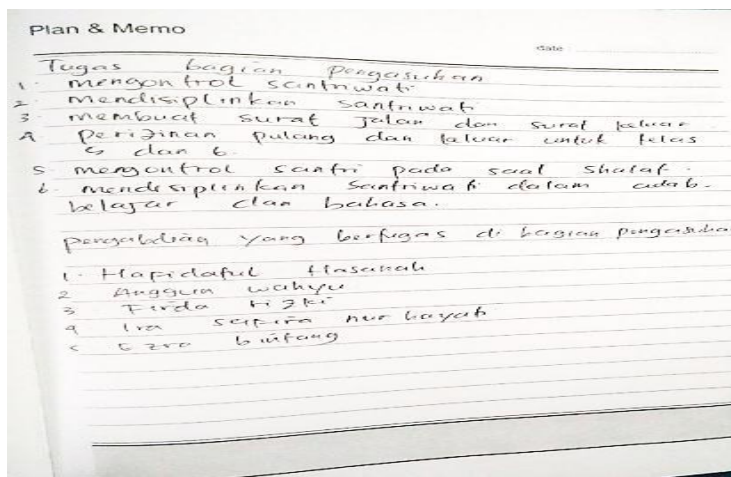 Plan & Memo
date
Tugas bagian pengasuhan
1. mengontrol santriwati
2. mendisiplinkan santriwati
3 membuat surat jalan dan surat keluar
4 perizinan pulang dan keluar untuk kelas
5 dan 6.
5 mengontrol santri pada saat shalat.
6. mendisiplinkan santriwati dalam adab.
belajar dan bahasa.
pengabdian yang bertugas di bagian pengasuhan
1. Hafidatul Hasanah
2 Anggun wahyu
3 Firda rizki
4 Ira safira nur hayati
5 Ezra bintang